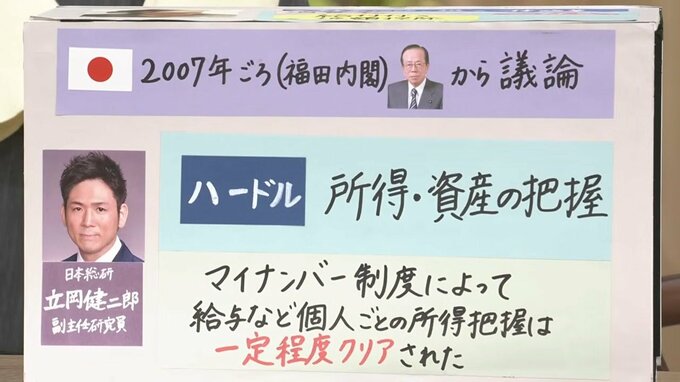 2007年ごろ(福田内閣)から議論
ハードル 所得・資産の把握
日本総研
立岡健二郎
副主任研究員
マイナンバー制度によって
給与など個人ごとの所得把握は
一定程度クリアされた